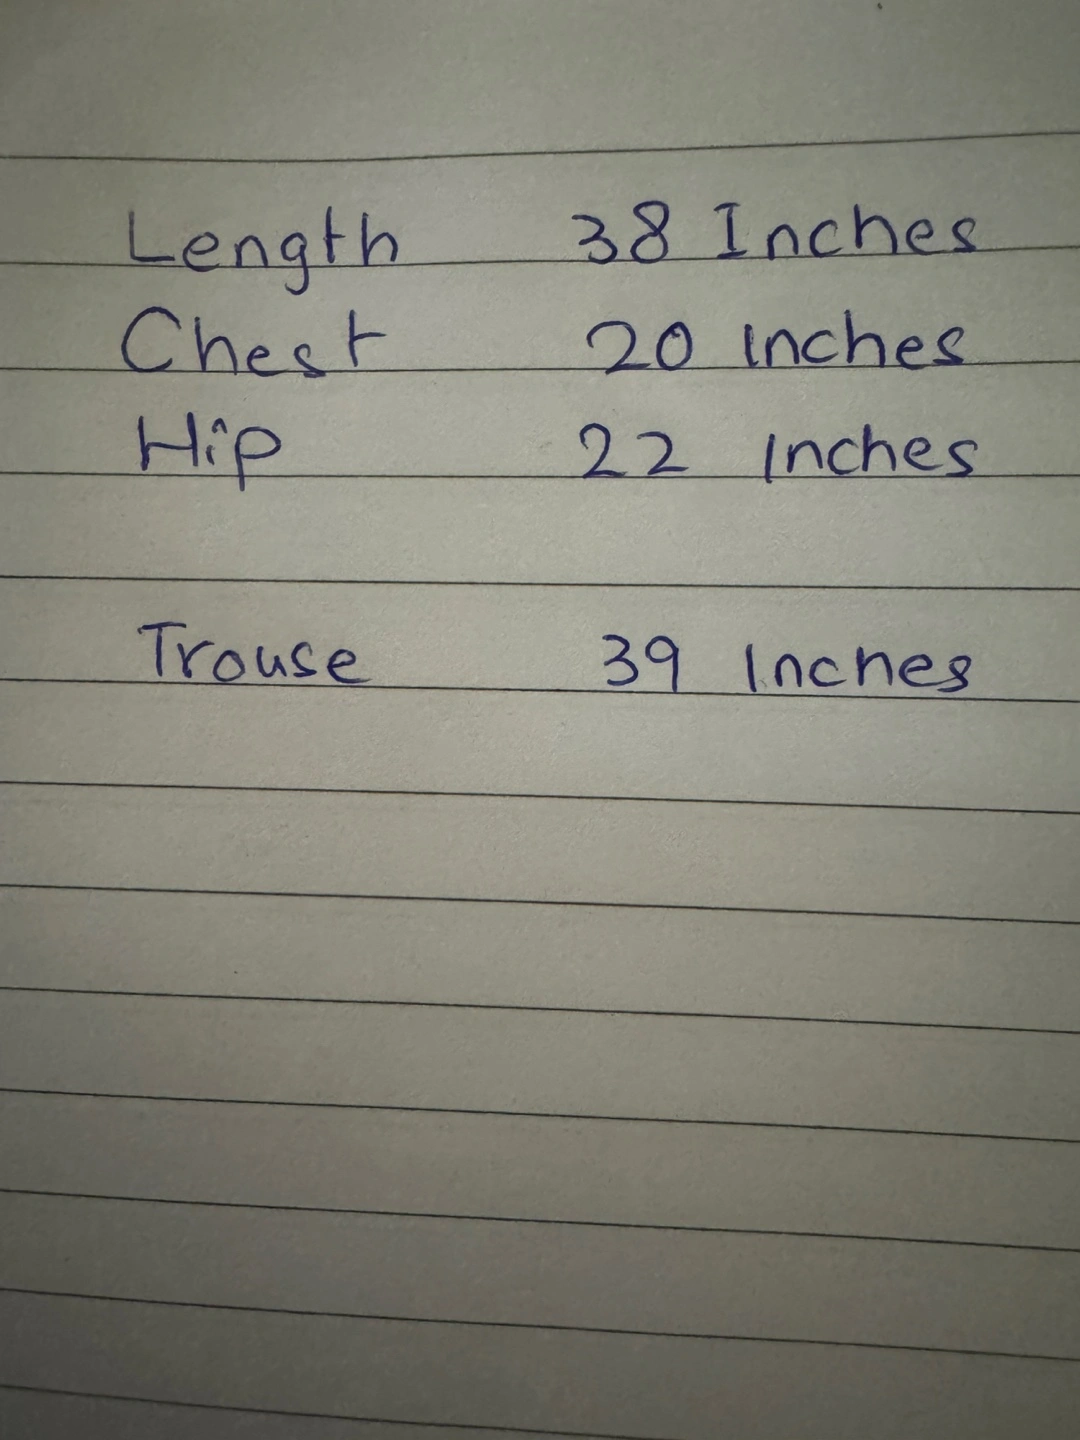 Length 38 Inches
Chest 20 Inches
Hip 22 Inches
Trouse 39 Inches